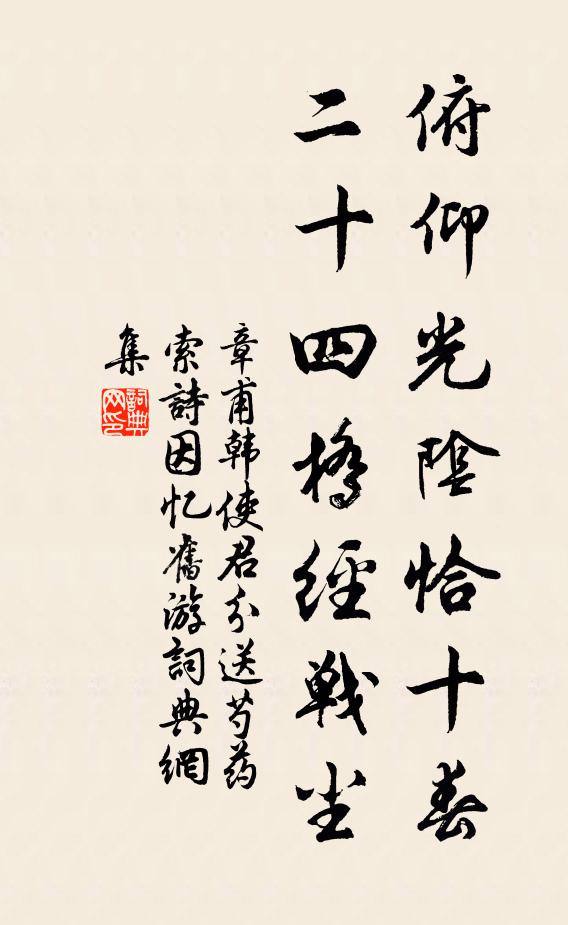 俯仰光陰恰十春
二十四橋經戰尘
章甫韩使君分送芍药
索詩因忆舊游詞典網
集
詞典网印